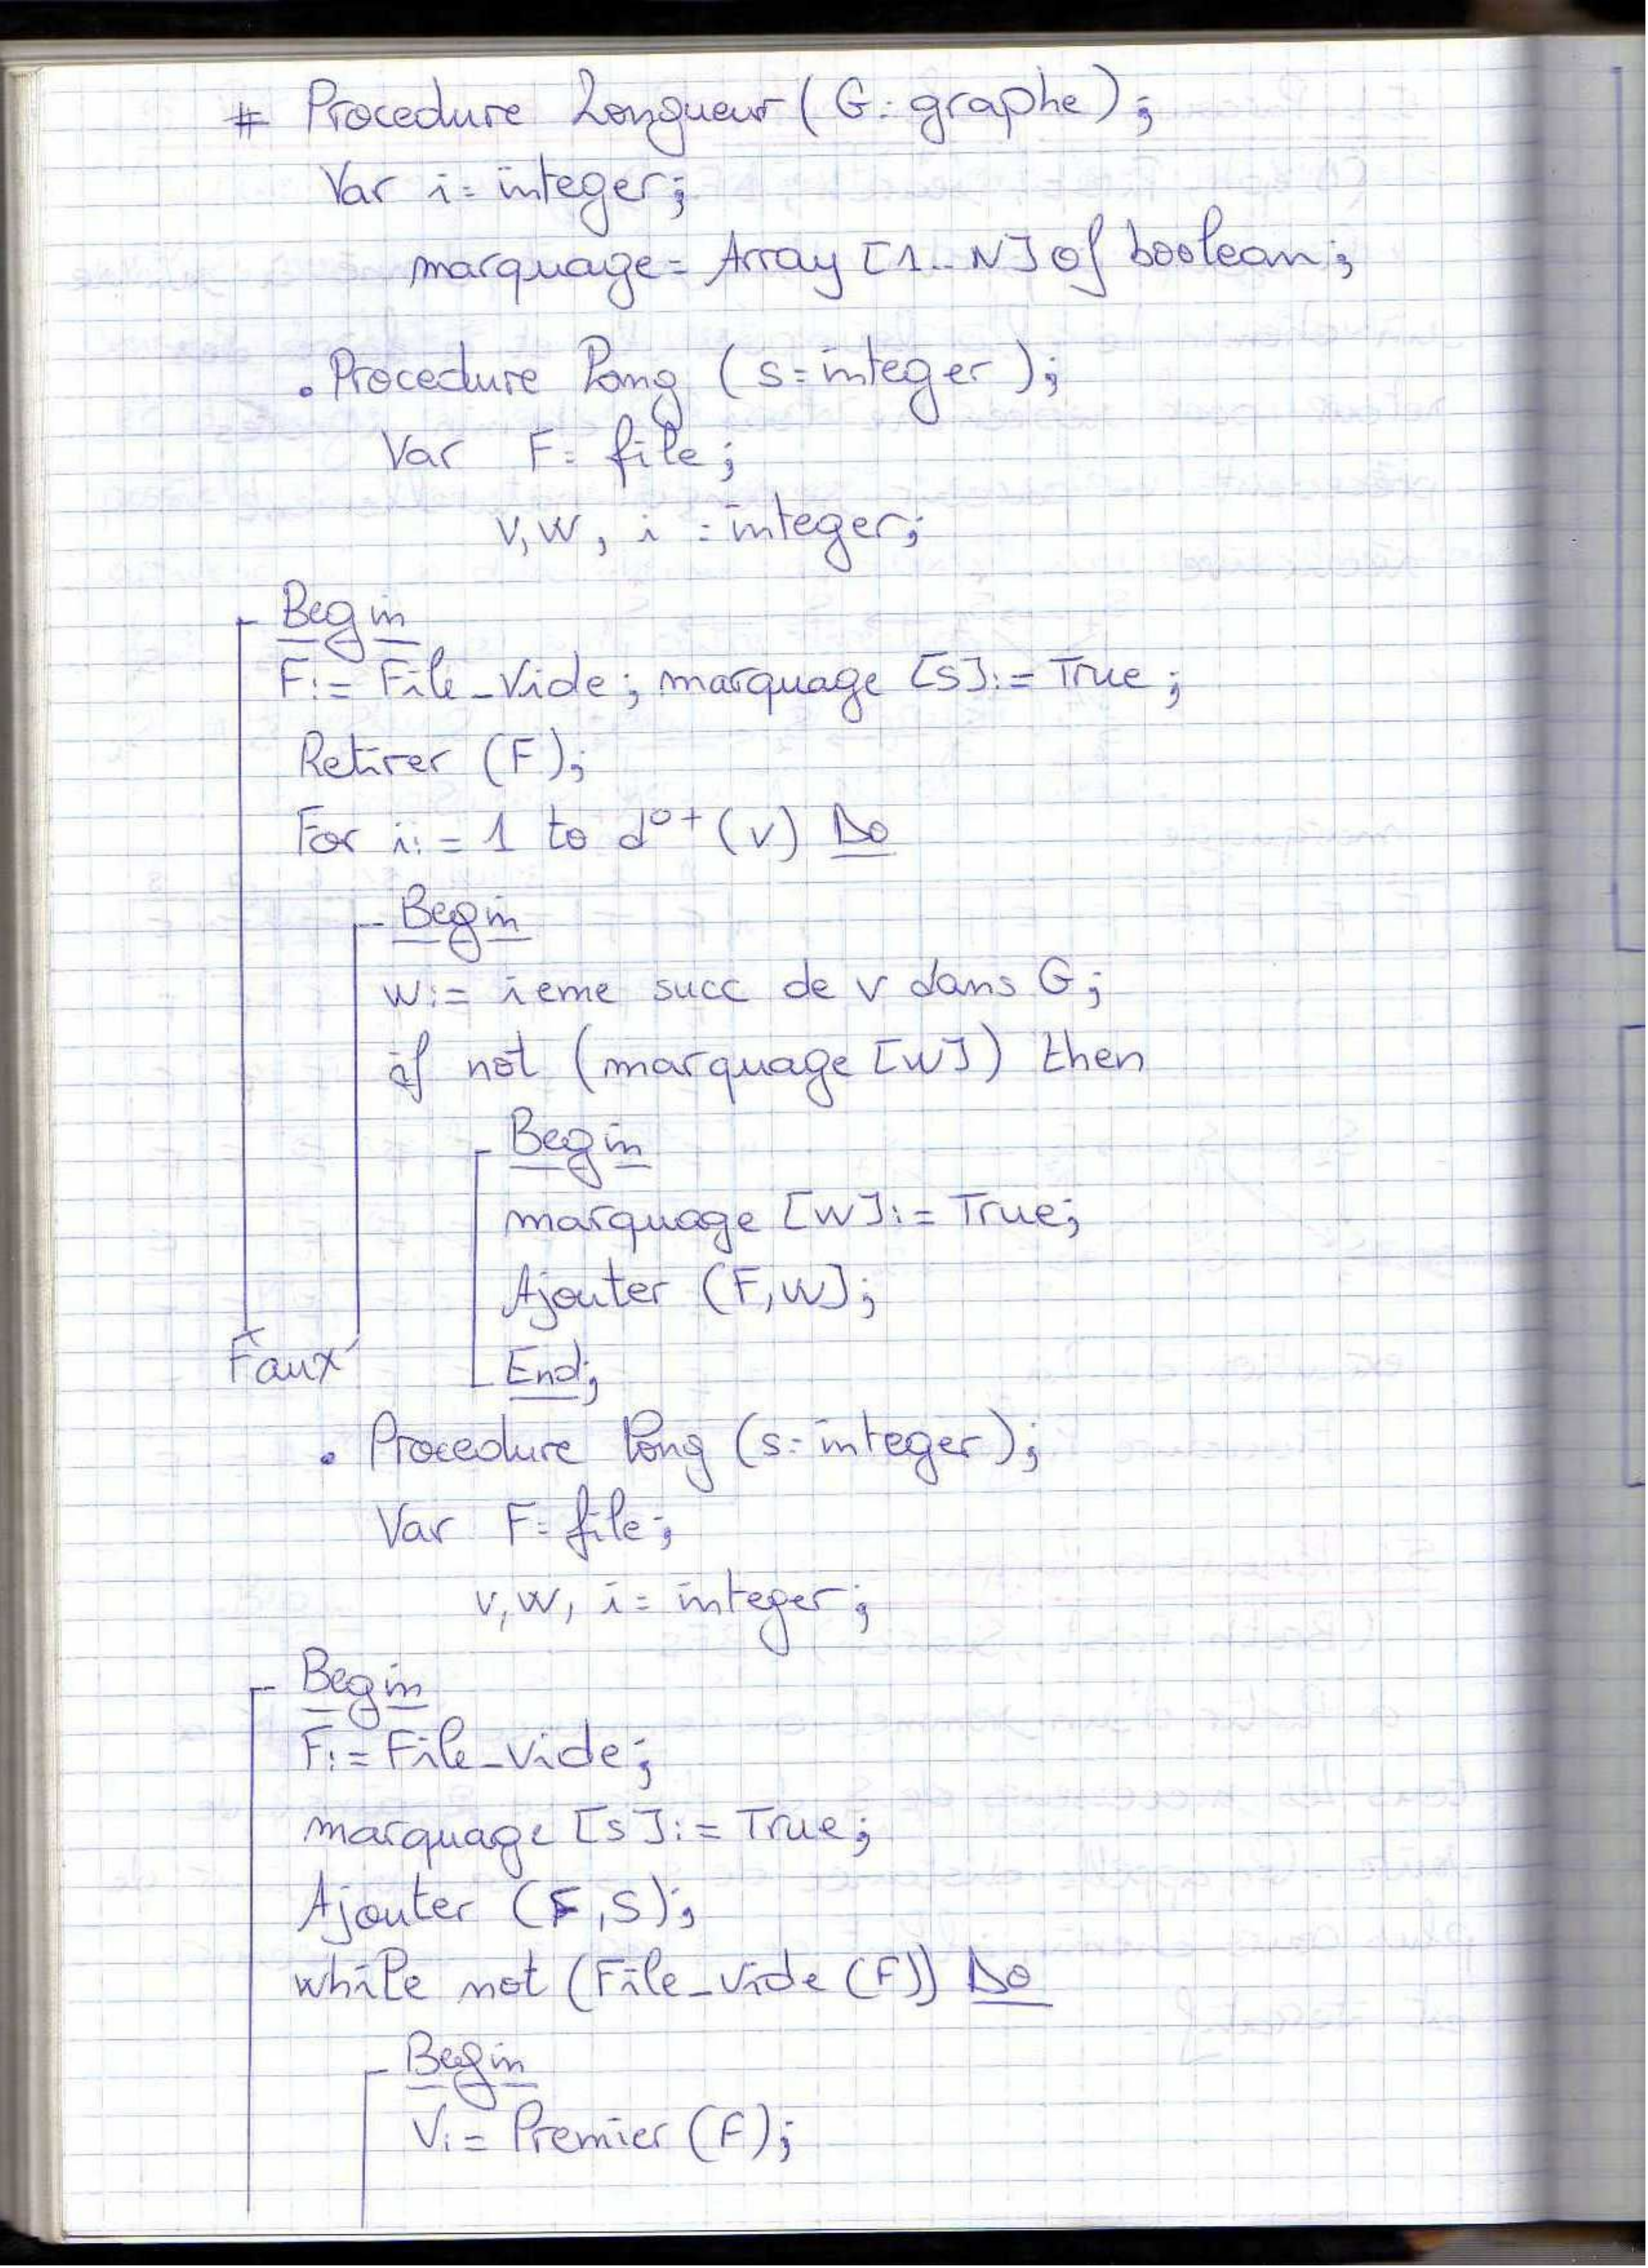 # Procedure Longueur (G: graphe);
Var i: integer;
marquage: Array [1..N] of boolean;
. Procedure Long (s: integer);
Var F: file;
v, w, i : integer;
Begin
F:= File_Vide; marquage [s]:= True;
Retirer (F);
For i:= 1 to d°+(v) Do
Begin
w:= ieme succ de v dans G;
if not (marquage [w]) then
Begin
marquage [w]:= True;
Ajouter (F,w];
End;
Faux
. Procedure long (s: integer);
Var F: file;
v, w, i: integer;
Begin
F:= File_vide;
marquage [s]:= True;
Ajouter (F,S);
while not (File_vide (F)) Do
Begin
V:= Premier (F);